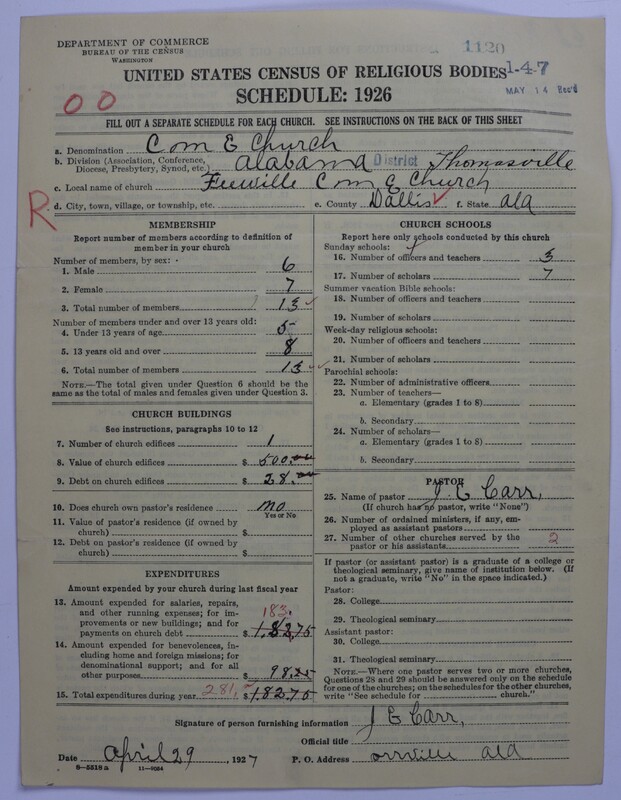 DEPARTMENT OF COMMERCE
BUREAU OF THE CENSUS
WASHINGTON
1120
1-47
MAY 14 Rec'd
UNITED STATES CENSUS OF RELIGIOUS BODIES
SCHEDULE: 1926
00
FILL OUT A SEPARATE SCHEDULE FOR EACH CHURCH. SEE INSTRUCTIONS ON THE BACK OF THIS SHEET
a. Denomination Com E Church
b. Division (Association, Conference, Diocese, Presbytery, Synod, etc.) Alabama District Thomasville
c. Local name of church Com E Church
R
d. City, town, village, or township, etc. e. County Dallis f. State Ala
MEMBERSHIP
Report number of members according to definition of
member in your church
Number of members, by sex:
1. Male 6
2. Female 7
3. Total number of members 13
Number of members under and over 13 years old:
4. Under 13 years of age 5
5. 13 years old and over 8
6. Total number of members 13
NOTE.—The total given under Question 6 should be the
same as the total of males and females given under Question 3.
CHURCH BUILDINGS
See instructions, paragraphs 10 to 12
7. Number of church edifices 1
8. Value of church edifices $ 500.00
9. Debt on church edifices $ 28.00
10. Does church own pastor's residence no
Yes or No
11. Value of pastor's residence (if owned by
church) $
12. Debt on pastor's residence (if owned by
church) $
EXPENDITURES
Amount expended by your church during last fiscal year
13. Amount expended for salaries, repairs,
and other running expenses; for im-
provements or new buildings; and for
183.
payments on church debt $ 182,75
14. Amount expended for benevolences, in-
cluding home and foreign missions; for
denominational support; and for all
other purposes $ 98.25
15. Total expenditures during year 281. $ 18275
CHURCH SCHOOLS
Report here only schools conducted by this church
Sunday schools:
16. Number of officers and teachers 3
17. Number of scholars 7
Summer vacation Bible schools:
18. Number of officers and teachers
19. Number of scholars
Week-day religious schools:
20. Number of officers and teachers
21. Number of scholars
Parochial schools:
22. Number of administrative officers
23. Number of teachers—
a. Elementary (grades 1 to 8)
b. Secondary
24. Number of scholars—
a. Elementary (grades 1 to 8)
b. Secondary
PASTOR
25. Name of pastor J E Carr,
(If church has no pastor, write "None")
26. Number of ordained ministers, if any, em-
ployed as assistant pastors
27. Number of other churches served by the
pastor or his assistants 2
If pastor (or assistant pastor) is a graduate of a college or
theological seminary, give name of institution below. (If
not a graduate, write "No" in the space indicated.)
Pastor:
28. College
29. Theological seminary
Assistant pastor:
30. College
31. Theological seminary
NOTE.—Where one pastor serves two or more churches,
Questions 28 and 29 should be answered only on the schedule
for one of the churches; on the schedules for the other churches,
write "See schedule for church."
Signature of person furnishing information J E Carr,
Official title
Date April 29, 1927 P. O. Address orrville Ala
8-5518 a 11-9064